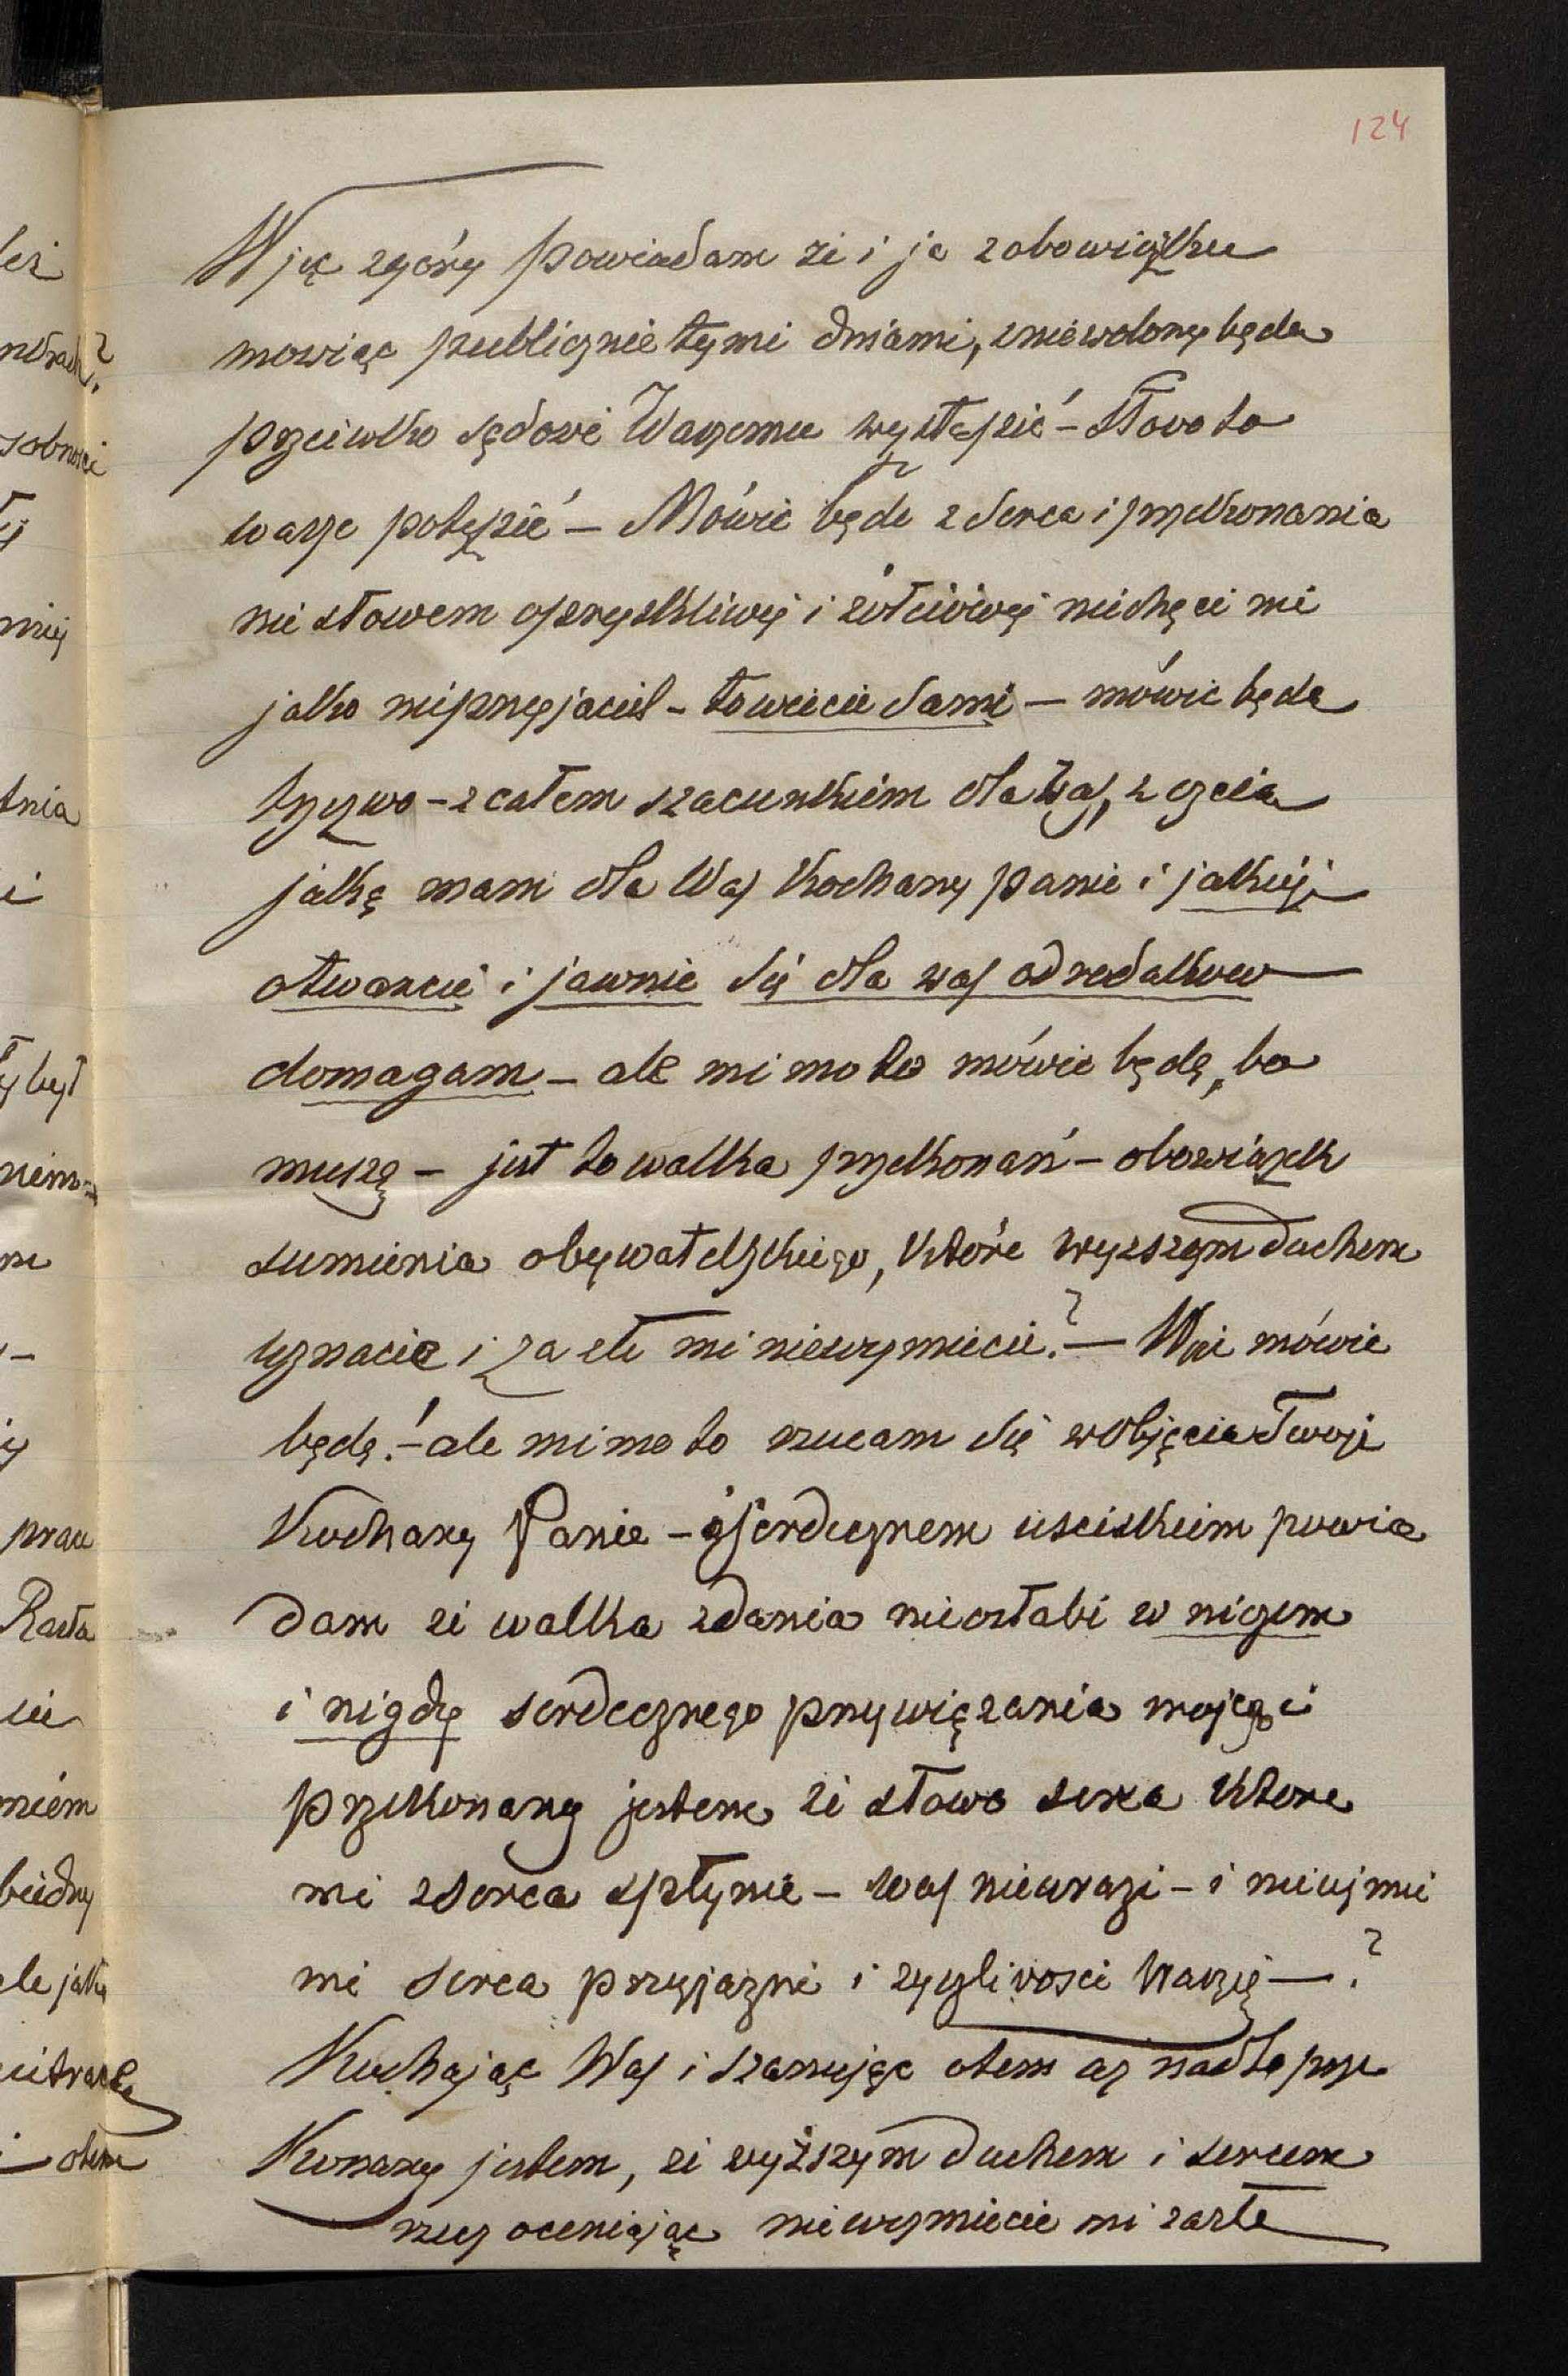 124
Więc zgóry powiadam że i ja z obowiązku
mowiąc publicznie tymi dniami, zniewolony będę
przeciwko sądowi Waszemu wystąpić – Słowo to
wasze potępić – Mówić będę z serca i przekonania
nie słowem opryskliwej i żółciowej niechęci nie
jako nieprzyjaciel – to wiecie sami – mówić będę
trzezwo – z całem szacunkiem dla Was, z czcią
jaką mam dla Was Kochany panie i jakiej
otwarcie i jawnie się dla was od rodakow
domagam – ale mimo to mówić będę, bo
muszę – jest to walka przekonań – obowiązek
sumienia obywatelskiego, które wyzszym duchem
uznacie i za złe mi niewezmiecie? – Więc mówić
będę! – ale mimo to rzucam się w objęcia Twoje
Kochany Panie – i serdecznem usciskiem powia
dam ze walka zdania nieosłabi w niczem
i nigdy serdecznego przywiązania mojego i
przekonany jestem ze słowo serca ktore
mi z serca spłynie – Was nieurazi – i nieujmie
mi serca przyjazni i zyczliwosci Waszej – ?
Kochając Was i szanując otem az nadto prze
konany jestem, ze wyższym duchem i sercem
rzecz oceniając niewezmiecie mi zazłe